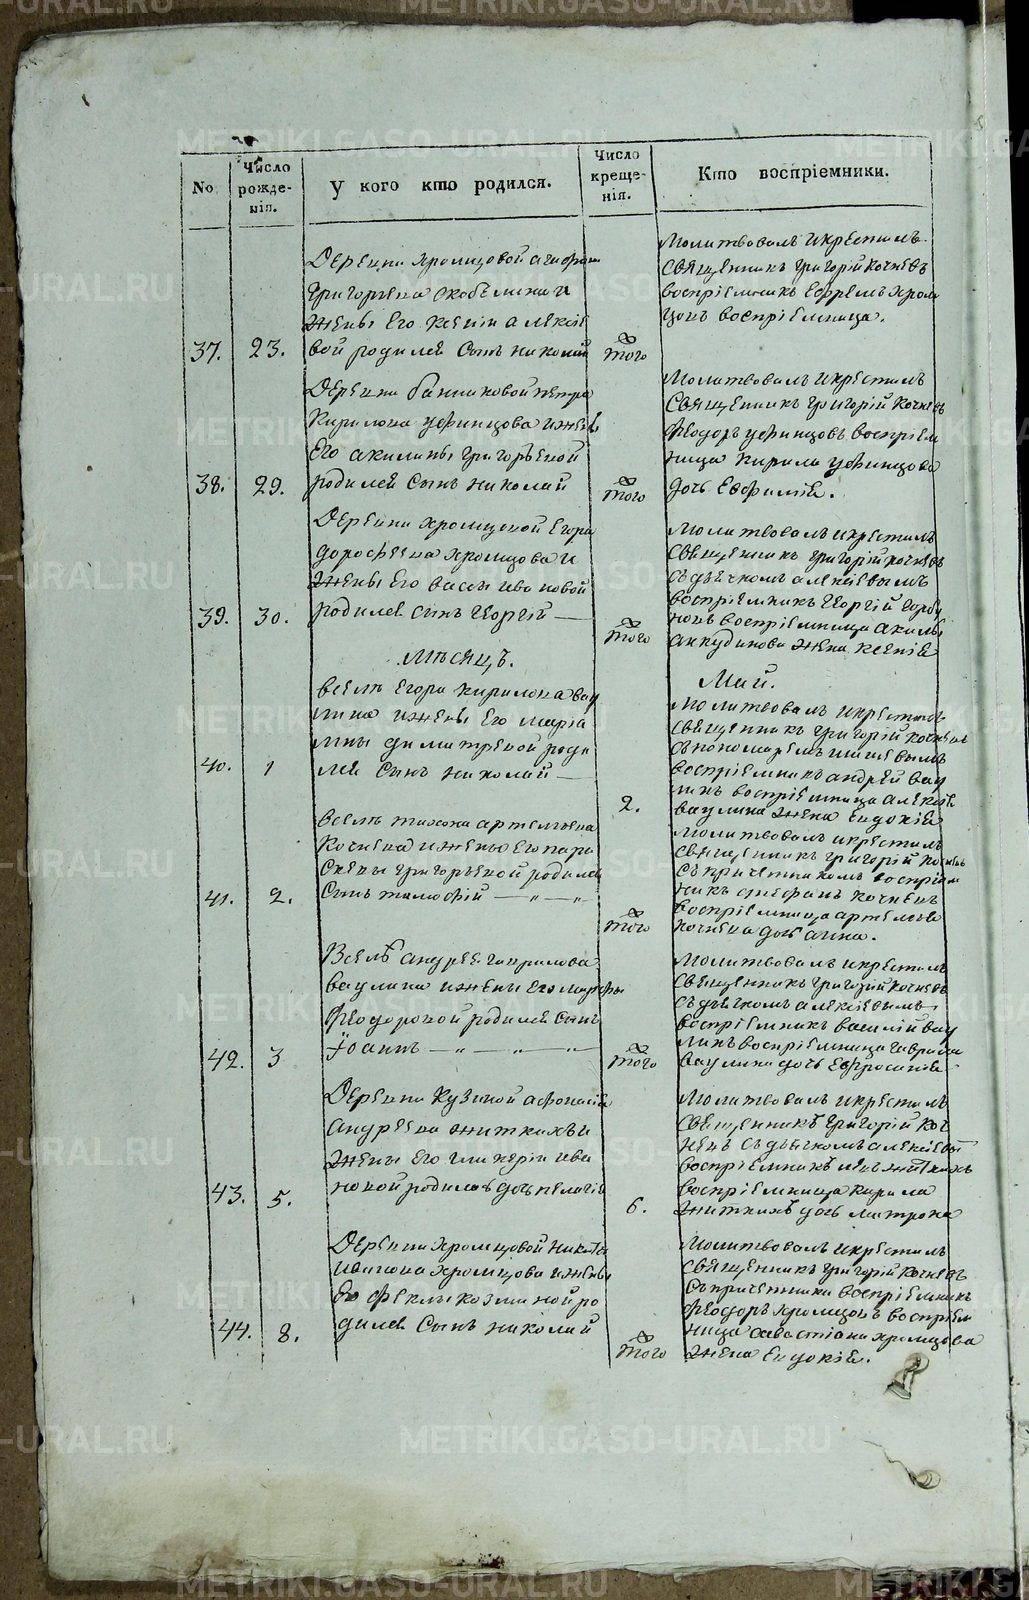 No
Число рожде-нія.
У кого кто родился.
Число креще-нія.
Кто воспріемники.
Деревни Хромцовой Агафона
Григорьева Скобелина и
жены Его Ксеніи Алексіе
вой родился Сынъ Николай
37. 23.
того
Молитвовалъ и крестилъ
Священникъ Григорій Кочневъ
воспріемникъ Ефремъ Хром
цовъ воспріемница.
Деревни Банниковой Петра
Кирилова Уфинцова и жены
Его Акилины Григорьевой
родился Сынъ Николай
38. 29.
того
Молитвовалъ и крестилъ
Священникъ Григорій Кочневъ
Феодоръ Уфинцовъ воспріем
ница Кирила Уфинцова
дочь Евфимія.
Деревни Хромцовой Егора
Дорофеева Хромцова и
жены Его Васы Ивановой
родился сынъ Георгій —
39. 30.
того
Молитвовалъ и крестилъ
Священникъ Григорій Кочневъ
съ дьячкомъ Алексіевымъ
воспріемникъ Георгій Горбу
новъ воспріемница
жена Ксенія
Мѣсяцъ.
Май.
Вселѣ Егора Кирилова Вау
лина и жены Его Маріа
мны Димитревой роди
лся Сынъ Николай —
40. 1
2.
Молитвовалъ и крестилъ
Священникъ Григорій Кочневъ
съ пономаремъ
воспріемникъ Андрей Вау
линъ воспріемница Алексія
Ваулина жена Евдокія
Вселѣ Тихона Артемьева
Кочнева и жены Его Пара
скевы Григорьевой родился
Сынъ Тимофій — „ — „ —
41. 2.
того
Молитвовалъ и крестилъ
Священникъ Григорій Кочневъ
съ причетникомъ воспріем
никъ Стефанъ Кочневъ
воспріемница Артемья
Кочнева дочь Анна.
Вселѣ Андрея Гаврилова
Ваулина и жены Его Марфы
Феодоровой родился Сынъ
Іоаннъ — „ — „ — „ —
42. 3
того
Молитвовалъ и крестилъ
Священникъ Григорій Кочневъ
съ дьячкомъ Алексіевымъ
воспріемникъ Василій Вау
линъ воспріемница Гаврила
Ваулина дочь Евфросинія
Деревни Кузиной Афонасія
Андреева Житкихъ и
жены Его Гликеріи Ива
новой родилась дочь Пелагія
43. 5.
6.
Молитвовалъ и крестилъ
Священникъ Григорій Коч
невъ съ дьячкомъ Алексіевы
воспріемникъ Житкихъ
воспріемница Кирила
Житкихъ дочь Матрона
Деревни Хромцовой Никиты
Иванова Хромцова и жены
Его Феклы Козминой ро
дился Сынъ Николай
44. 8.
того
Молитвовалъ и крестилъ
Священникъ Григорій Кочневъ
съ причетники воспріемникъ
Феодоръ Хромцовъ воспріем
ница Савастіана Хромцова
жена Евдокія.
METRIKI.GASO-URAL.RU